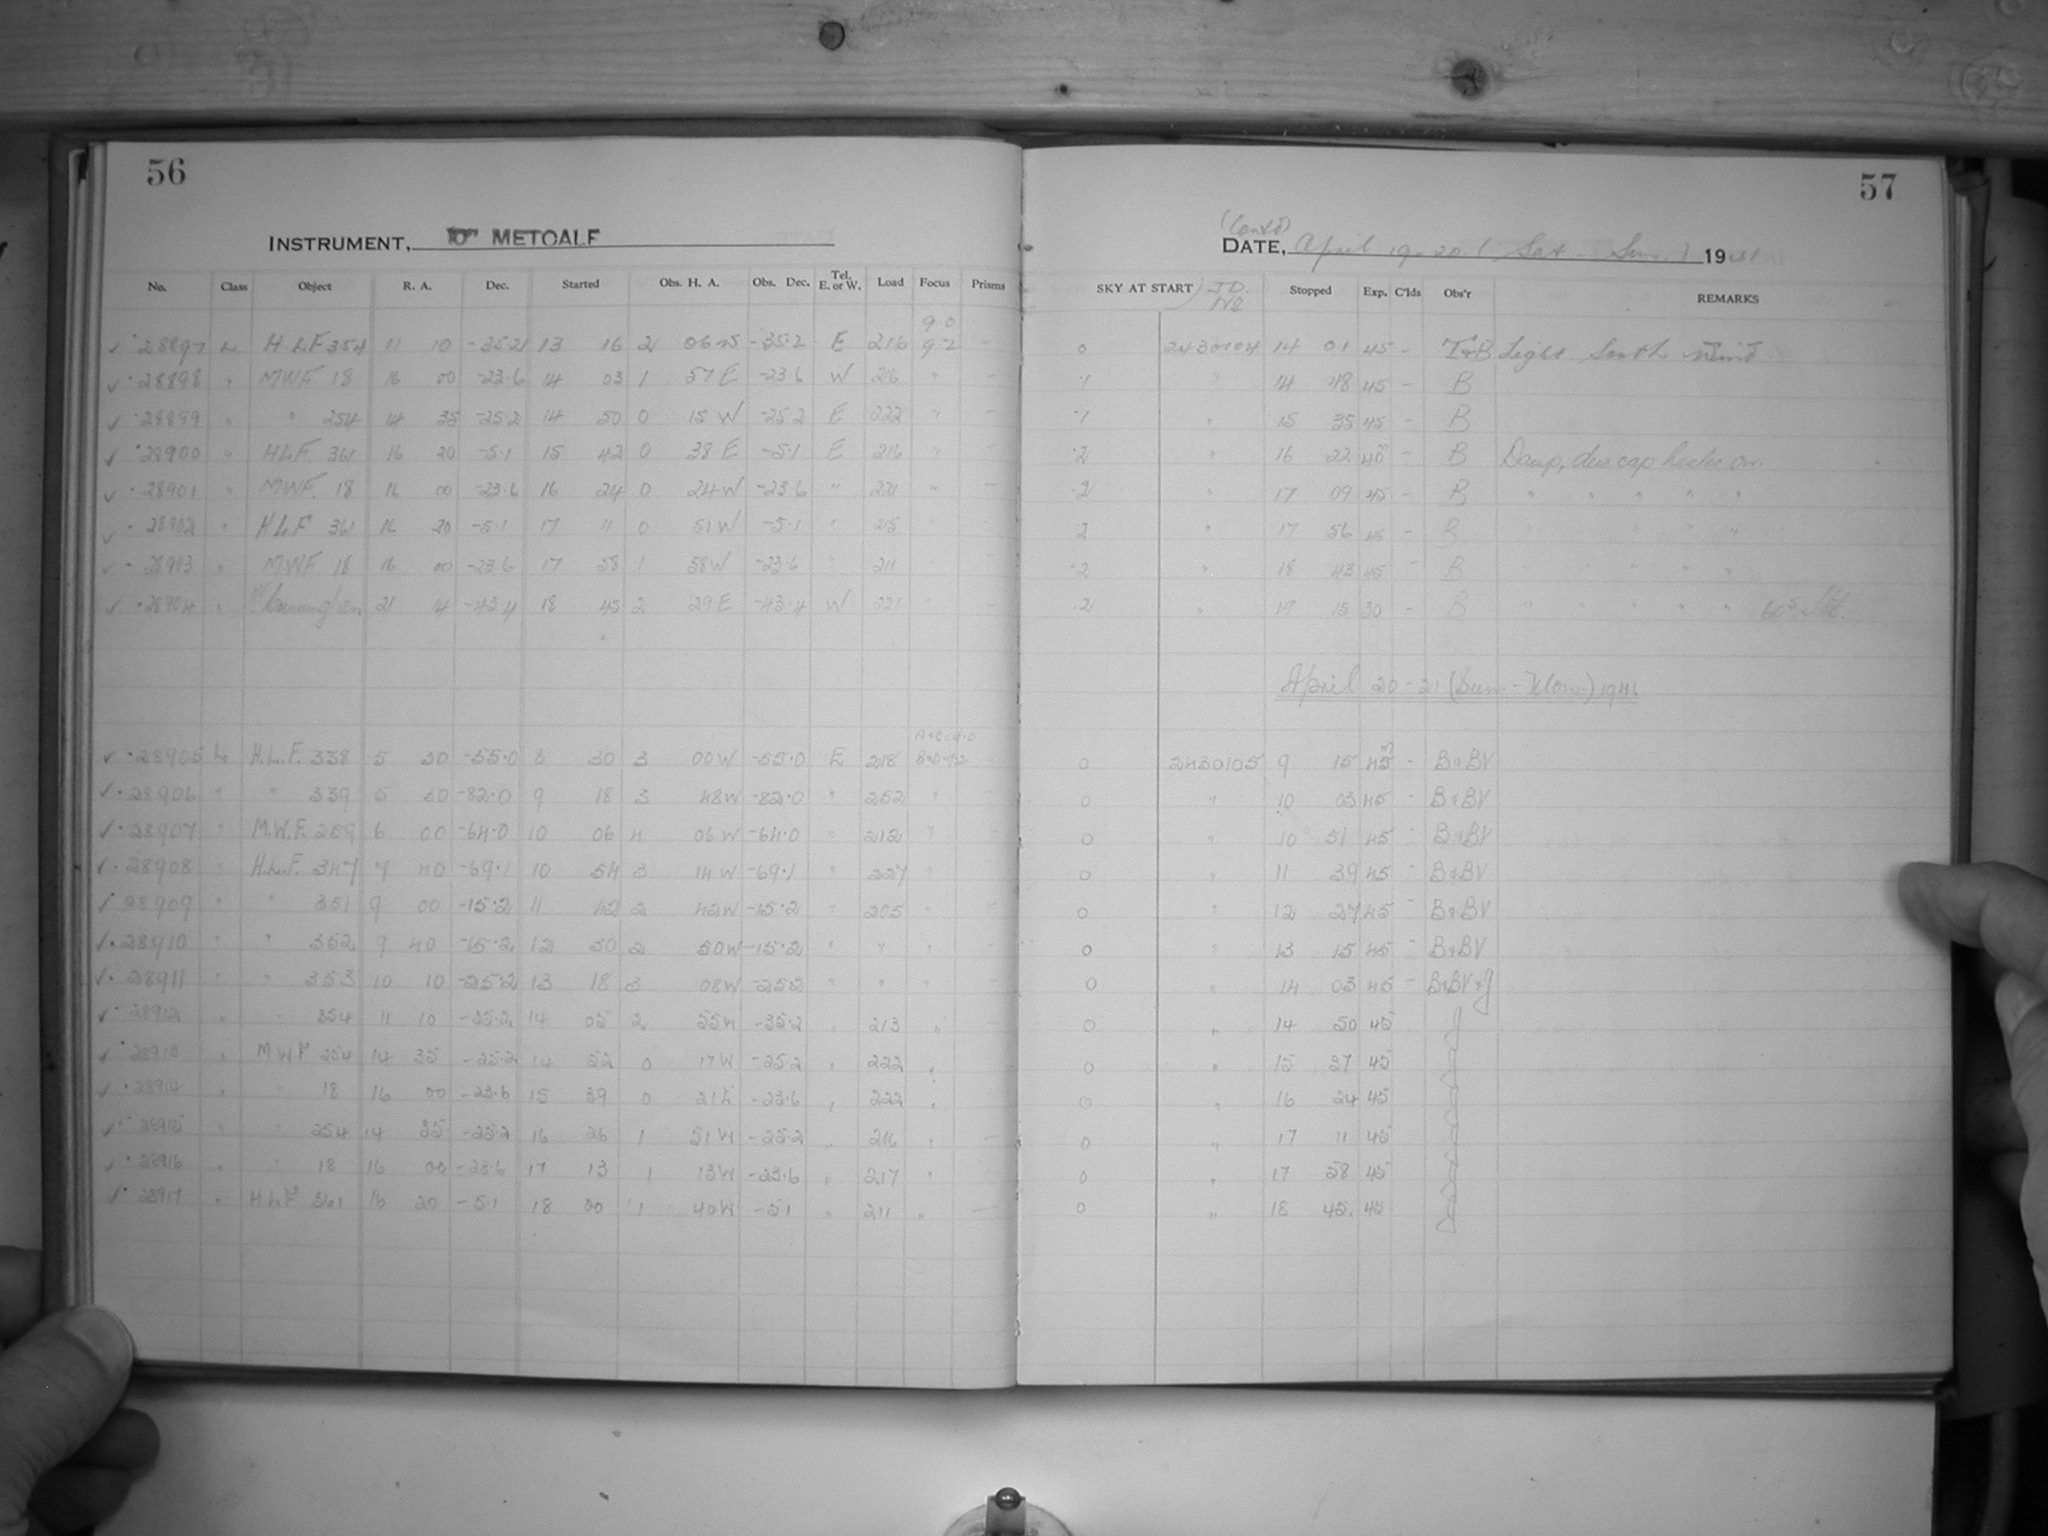 56
INSTRUMENT, 10" METCALF
No. Class Object R. A. Dec. Started Obs. H. A. Obs. Dec. Tel. E. or W. Load Focus Prisms
9.0
28897 L HLF 354 11 10 -35.2 13 16 2 06 W -35.2 E 216 9.2 -
28898 " MWF 18 16 00 -23.6 14 03 1 57 E -23.6 W 216 " -
28899 " " 254 14 35 -25.2 14 50 0 15 W -25.2 E 222 " -
28900 " HLF 361 16 20 -5.1 15 42 0 38 E -5.1 E 216 " -
28901 " MWF 18 16 00 -23.6 16 24 0 24 W -23.6 " 221 " -
28902 " HLF 361 16 20 -5.1 17 11 0 51 W -5.1 " 215
28903 " MWF 18 16 00 -23.6 17 58 1 58 W -23.6 " 211
28904 " Cunningham 21 4 -43.4 18 45 2 29 E -43.4 W 221 " -
28905 L H.L.F. 338 5 30 -55.0 8 30 3 00 W -55.0 E 218 -
28906 " " 339 5 30 -82.0 9 18 3 48 W -82.0 " 252 " -
28907 " M.W.F. 259 6 00 -64.0 10 06 4 06 W -64.0 " 212 " -
28908 " H.L.F. 347 7 40 -69.1 10 54 3 14 W -69.1 " 227 " -
28909 " " 351 9 00 -15.2 11 42 2 42 W -15.2 " 205 " -
28910 " " 352 9 40 -15.2 12 30 2 50 W -15.2 " " " -
28911 " " 353 10 10 -25.2 13 18 3 08 W -25.2 " " " -
28912 " " 354 11 10 -35.2 14 05 2 55 W -35.2 " 213 " -
28913 " MWF 254 14 35 -25.2 14 52 0 17 W -25.2 " 222 "
28914 " " 18 16 00 -23.6 15 39 0 21 E -23.6 " 222 "
28915 " " 254 14 35 -25.2 16 26 1 51 W -25.2 " 216 " -
28916 " " 18 16 00 -23.6 17 13 1 13 W -23.6 " 217 " -
28917 " HLF 361 16 20 -5.1 18 00 1 40 W -5.1 " 211 " -
57
(Contd)
DATE, April 19-20 (Sat - Sun.) 1941
SKY AT START J.D. No Stopped Exp. C'lds Obs'r REMARKS
0 2430104 14 01 45 - T&B Light South Wind.
1 " 14 48 45 - B
1 " 15 35 45 - B
2 " 16 22 40 - B Damp, dew cap heater on.
2 " 17 09 45 - B " " " " "
2 " 17 56 45 - B " " " " "
2 " 18 43 45 - B " " " " "
2 " 19 15 30 - B " " " " "
April 20-21 (Sun.-Mon.) 1941
0 2430105 9 15 45 - B&BV
0 " 10 03 45 - B&BV
0 " 10 51 45 - B&BV
0 " 11 39 45 - B&BV
0 " 12 27 45 - B&BV
0 " 13 15 45 - B&BV
0 " 14 03 45 - B&BV&J
0 " 14 50 45 J
0 " 15 37 45 J
0 " 16 24 45 J
0 " 17 11 45 J
0 " 17 58 45 J
0 " 18 45 45 J